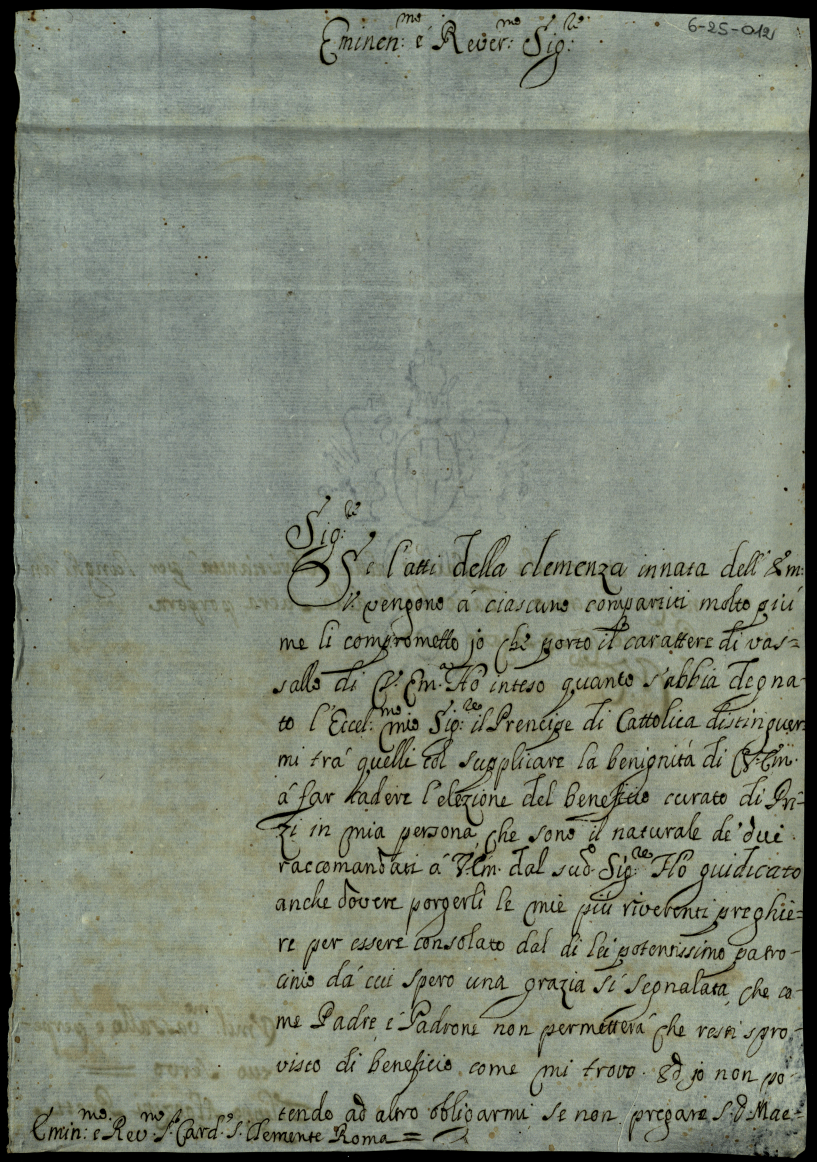 6-25-012
Eminen:mo e Rever:mo Sig:re
Sig:re
Se l'atti della clemenza innata dell' Em:
V. vengono á ciascuno compartiti molto più
me li comprometto jo che porto il carattere di vas=
sallo di V. Em.a Hò inteso quanto s'abbia degna-
to l'Eccel:mo mio Sig:re il Prencipe di Cattolica distinguer
mi trá quelli col supplicare la benignitá di V. Em.
á far cadere l'elezione del beneficio curato di Pri-
zi in mia persona, che sono il naturale de' due
raccomandati á V. Em. dal sud.o Sig:re Hò guidicato
anche dovere porgerli le mie più riverenti preghie=
re per essere consolato dal di lei potentissimo patro-
cinio dá cui spero una grazia sí segnalata, che co-
me Padre é Padrone non permetterá che resti spro-
visto di beneficio come mi trovo. Ed jo non po-
tendo ad altro obligarmi se non pregare S. D. Mae-
Emin:mo e Rev:mo S.r Card.e S. Clemente Roma =